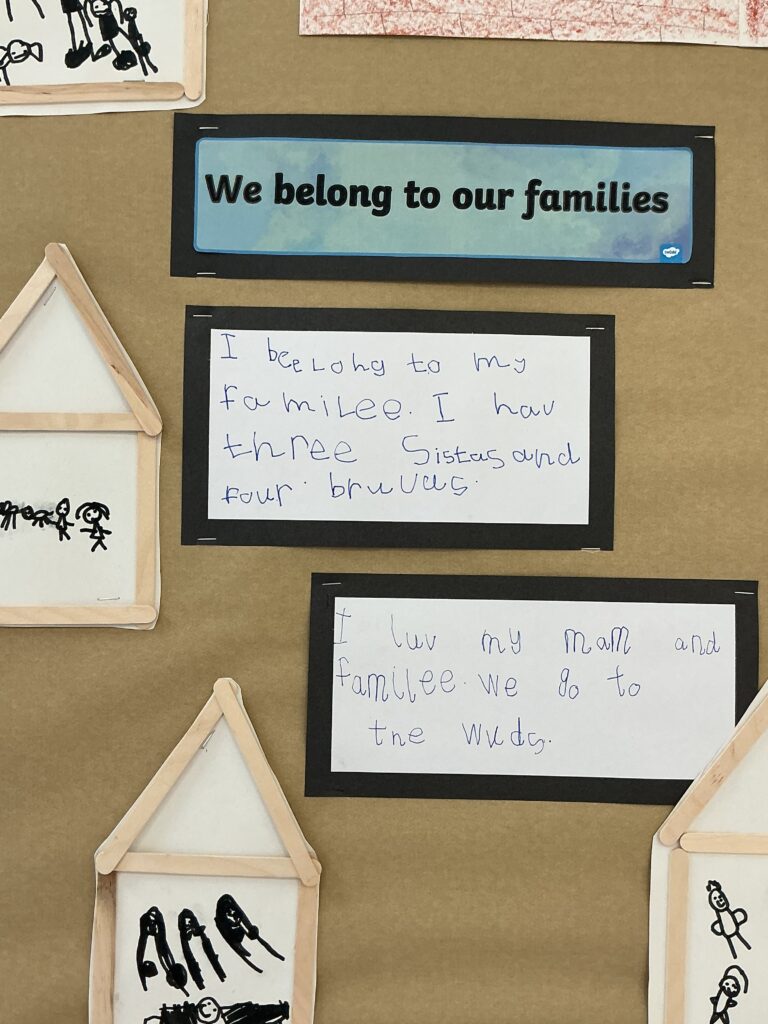 We belong to our families
I beelong to my
familee. I hav
three Sistas and
four bruvas.
I luv my mam and
familee. we go to
the wuds.